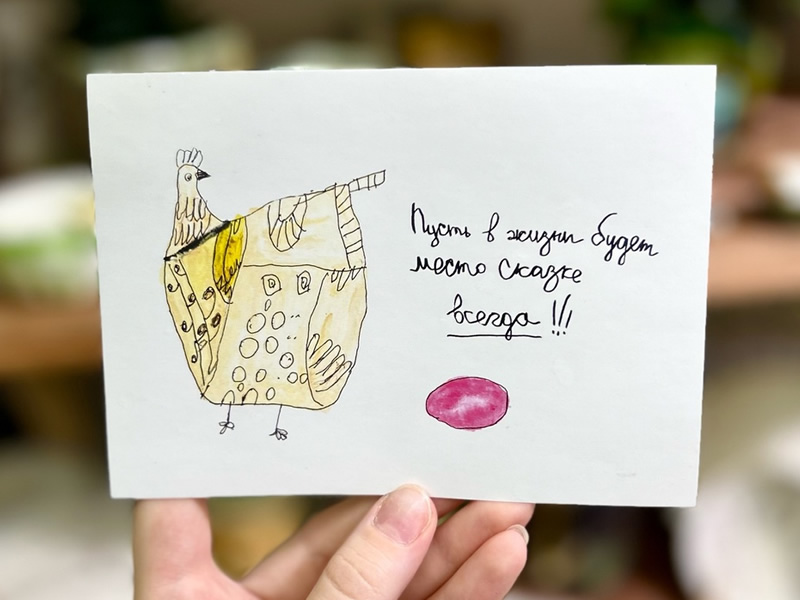 Пусть в жизни будет
место сказке
всегда !!!